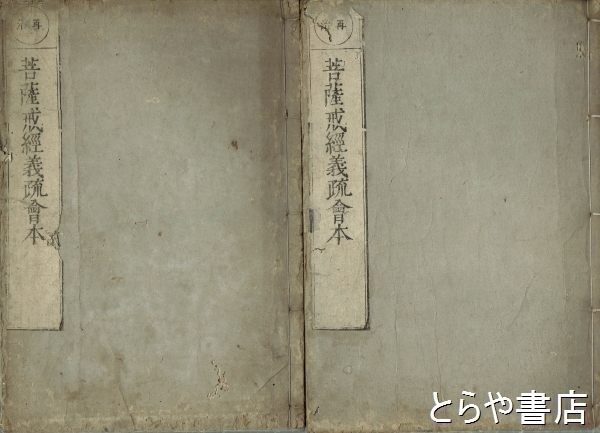 再
菩薩戒經義疏會本
再
菩薩戒經義疏會本
とらや書店